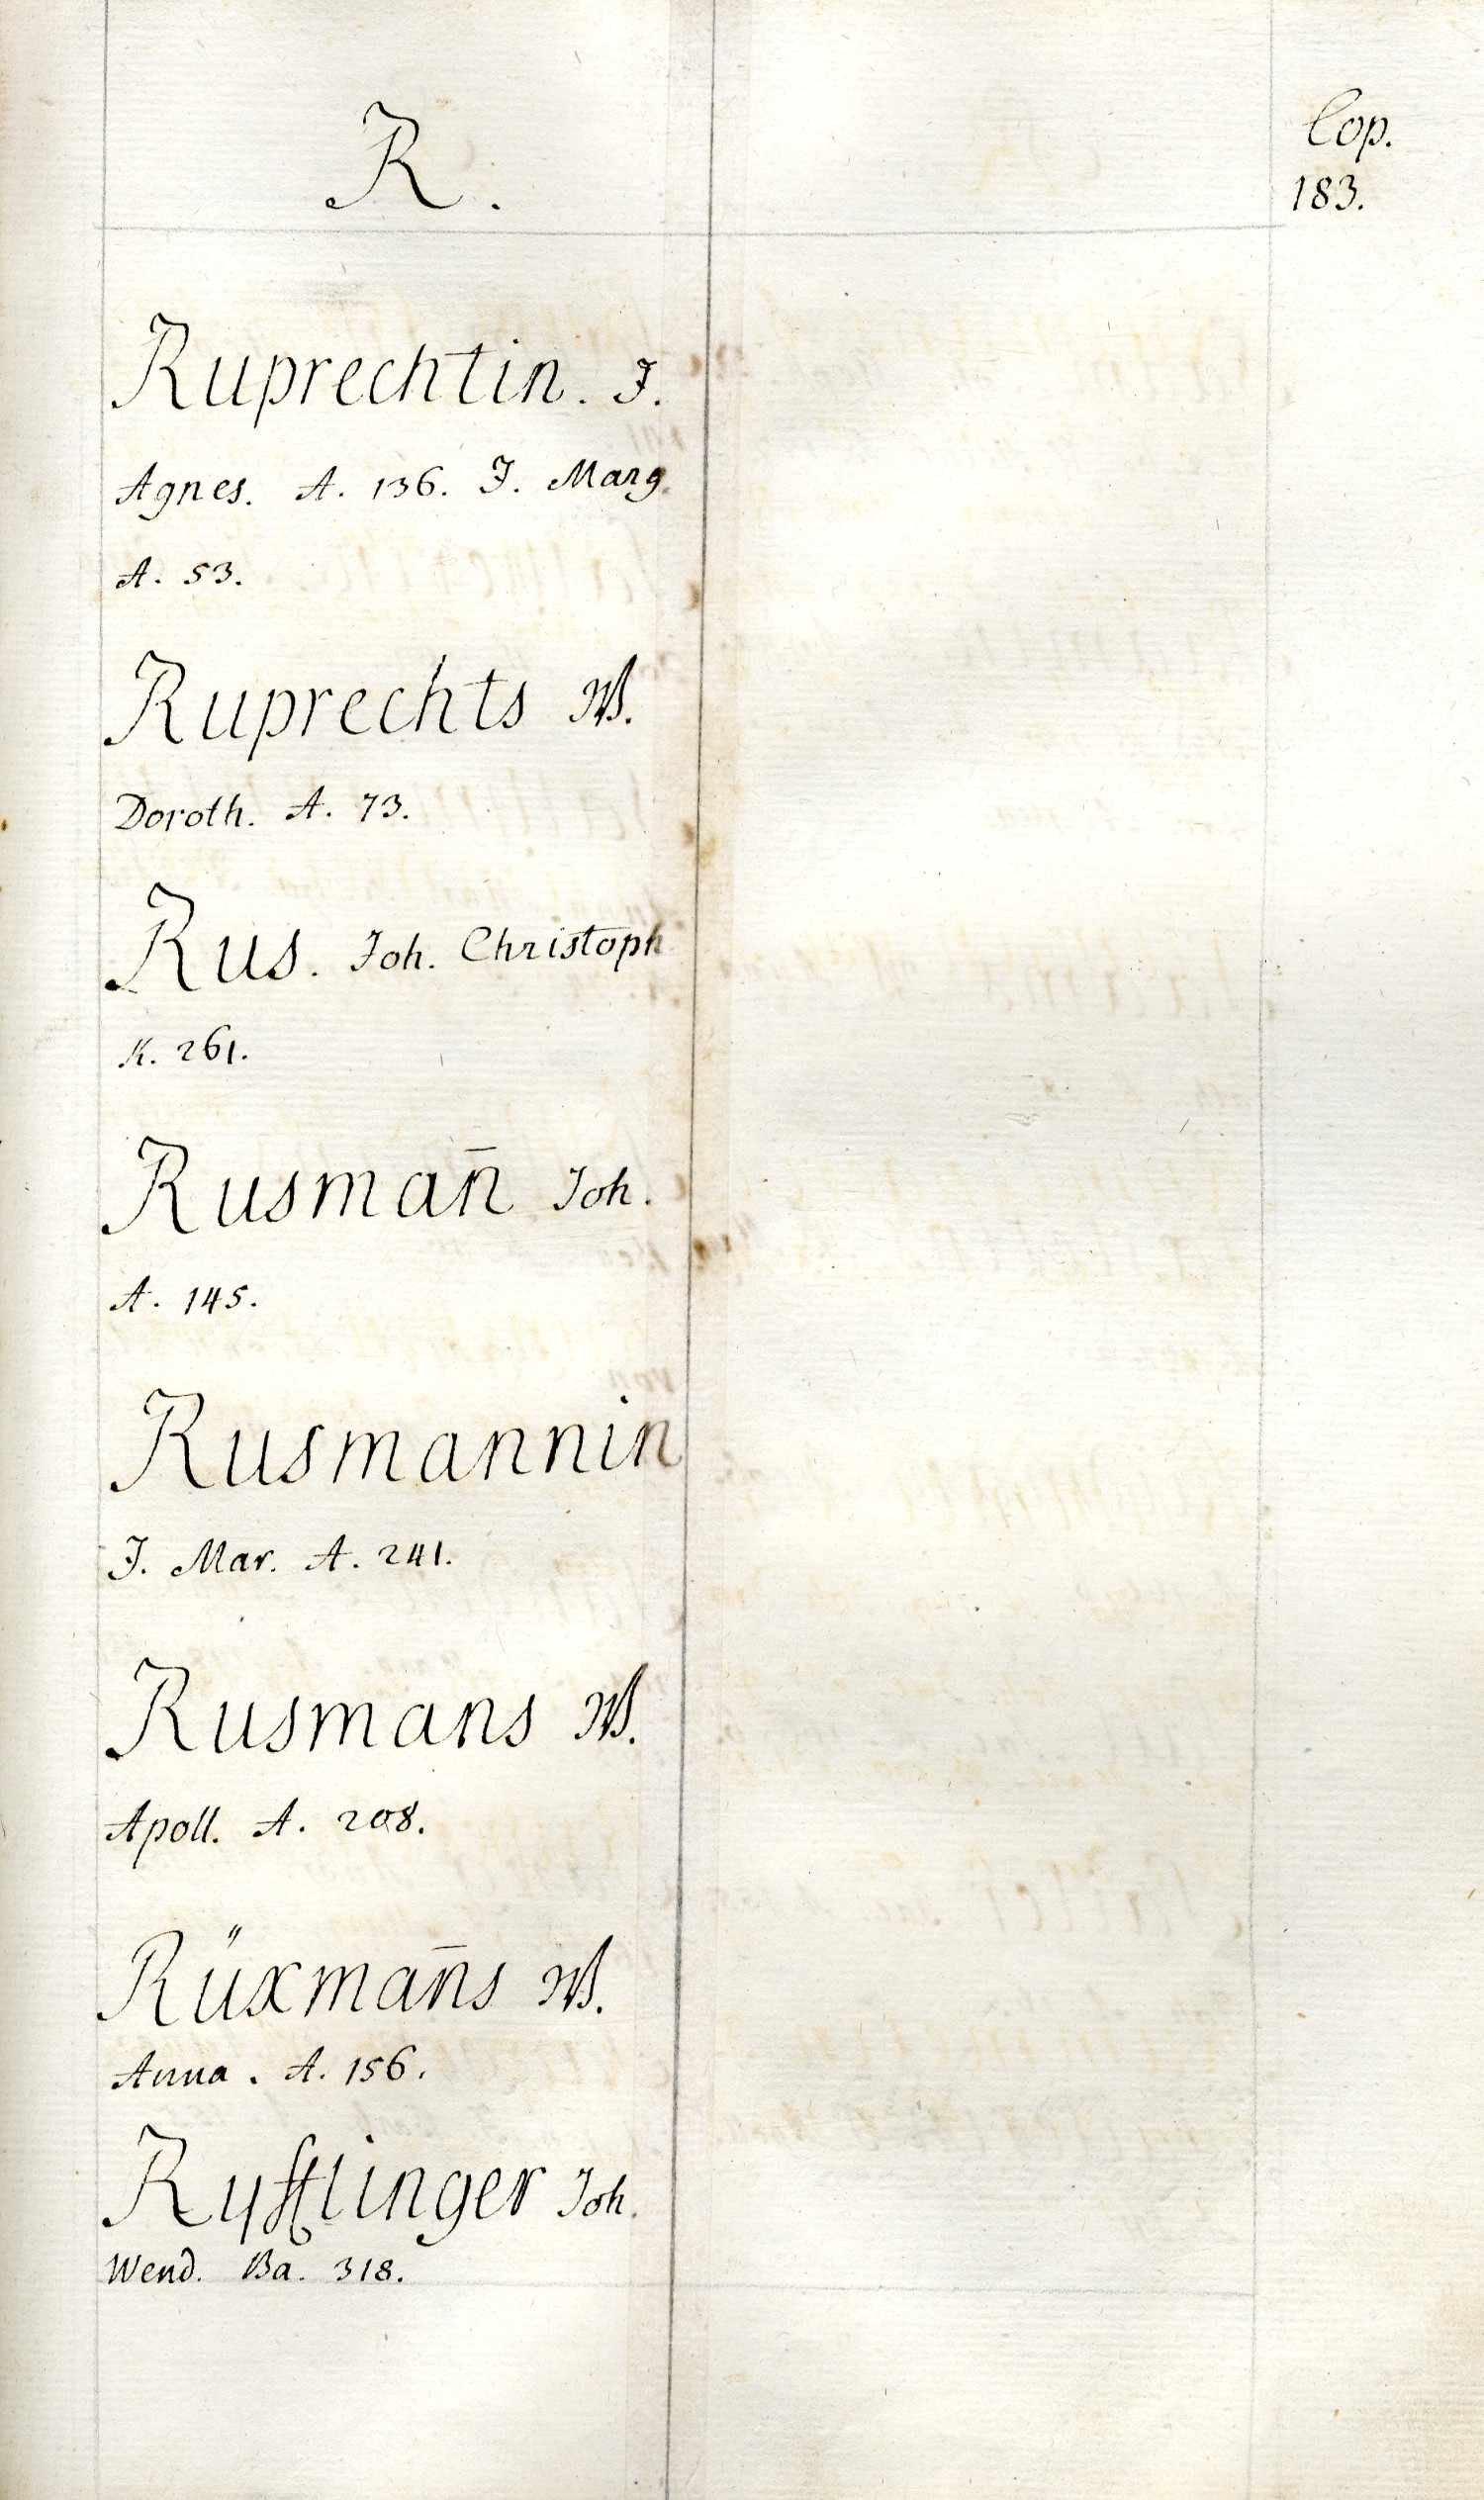 R.
Cop.
183.
Ruprechtin. J.
Agnes. A. 136. J. Marg.
A. 53.
Ruprechts W.
Doroth. A. 73.
Rus. Joh. Christoph
K. 261.
Rusman̄ Joh.
A. 145.
Rusmannin
J. Mar. A. 241.
Rusmans W.
Apoll. A. 208.
Rüxman̄s W.
Anna. A. 156.
Ryſſlinger Joh.
Wend. Ba. 318.